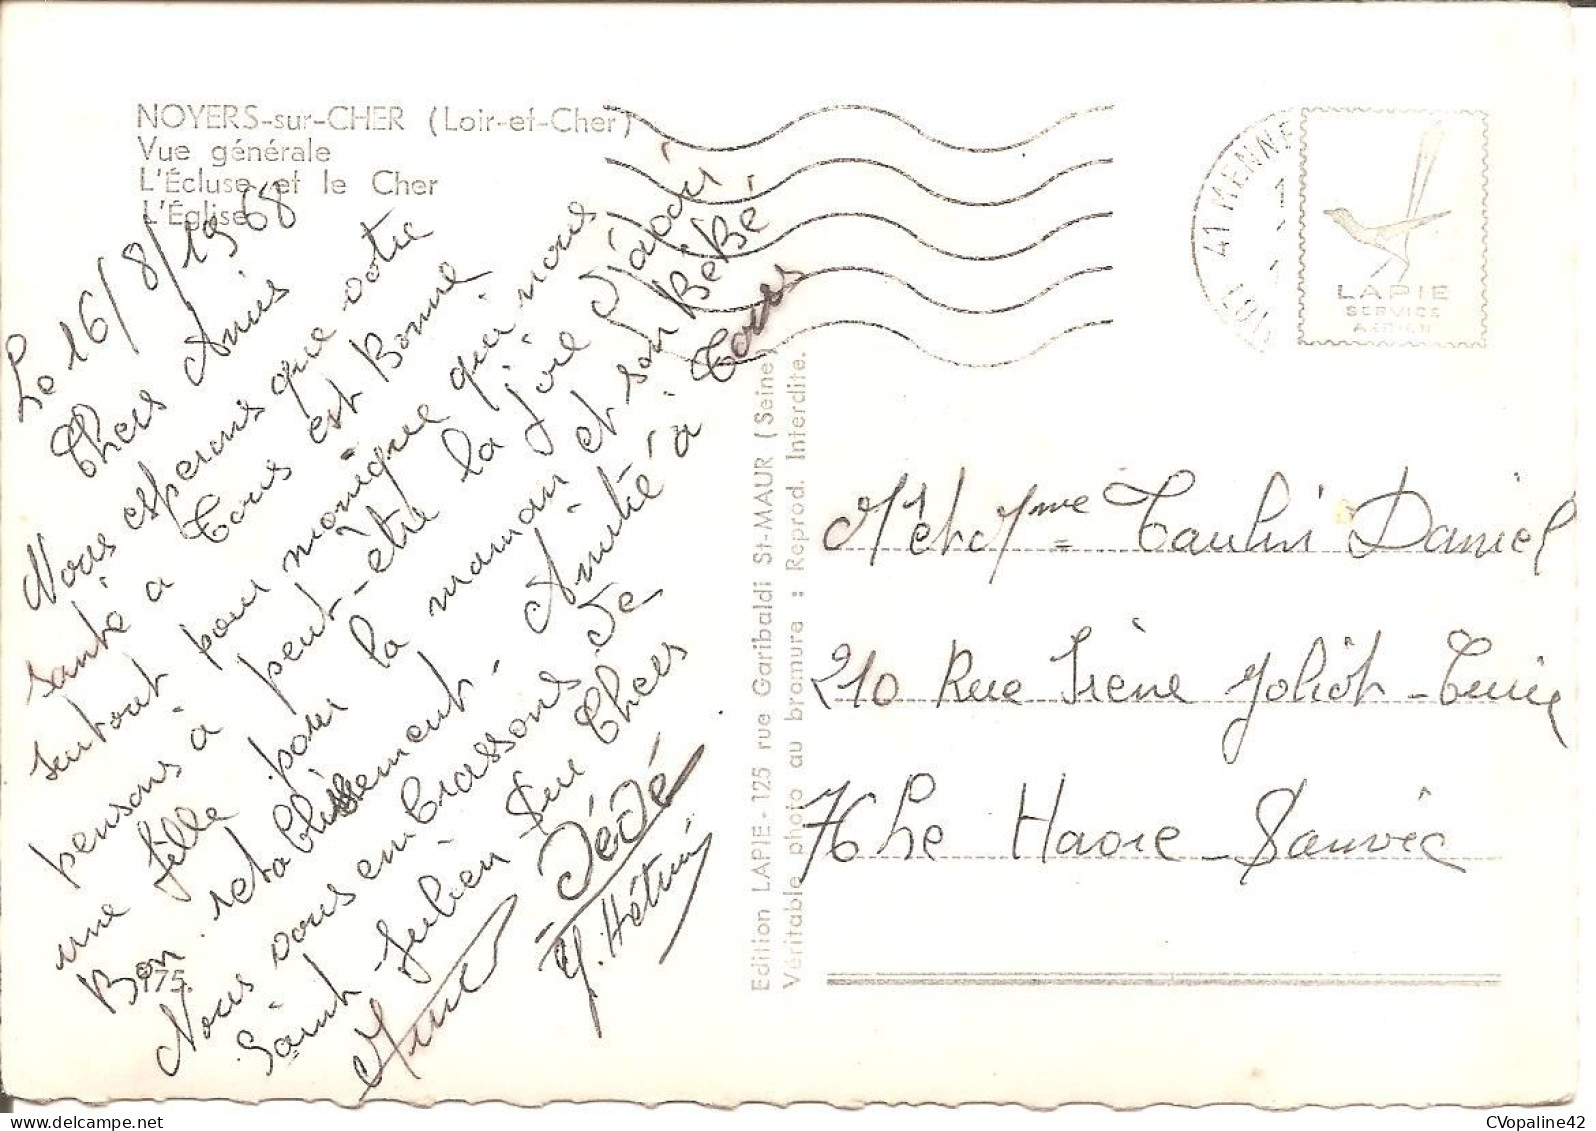 NOYERS-sur-CHER (Loir-et-Cher)
Vue générale
L'Écluse et le Cher
L'Église
Le 16/8/1968
Chers Amis
Nous esperons que votre
santé a tous est Bonne
surtout pour monique qui nous
pensons à peut-être la joie d'avoir
une fille pour la maman et son BéBé
Bon retablissement - Amitié à tous
Nous vous embrassons de
Saint-Julien Sur Chers
Dédé
975.
Edition LAPIE - 125 rue Garibaldi St-MAUR (Seine)
Véritable photo au bromure : Reprod. Interdite.
41 MENNE
LOI
LAPIE
SERVICE
AERIEN
Mr et Mme Taulin Daniel
210 Rue Irène Joliot-Curie
76 Le Havre - Sanvic
CVopaline42